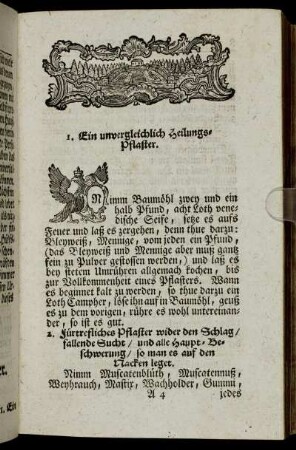 1. Ein unvergleichlich Heilungs-
Pflaster.
Nimm Baumöhl zwey und ein
halb Pfund, acht Loth vene-
dische Seife, setze es aufs
Feuer und laß es zergehen, denn thue darzu:
Bleyweiß, Mennige, vom jeden ein Pfund,
(das Bleyweiß und Mennige aber muß gantz
fein zu Pulver gestossen werden,) und laß es
bey stetem Umrühren allgemach kochen, bis
zur Vollkommenheit eines Pflasters. Wann
es beginnet kalt zu werden, so thue darzu ein
Loth Campher, löse ihn auf in Baumöhl, geuß
es zu dem vorigen, rühre es wohl untereinan-
der, so ist es gut.
2. Fürtrefliches Pflaster wider den Schlag/
fallende Sucht/ und alle Haupt-Be-
schwerung/ so man es auf den
Nacken leget.
Nimm Muscatenblüth, Muscatennuß,
Weyhrauch, Mastix, Wachholder, Gummi,
A 4 jedes
1. Ein